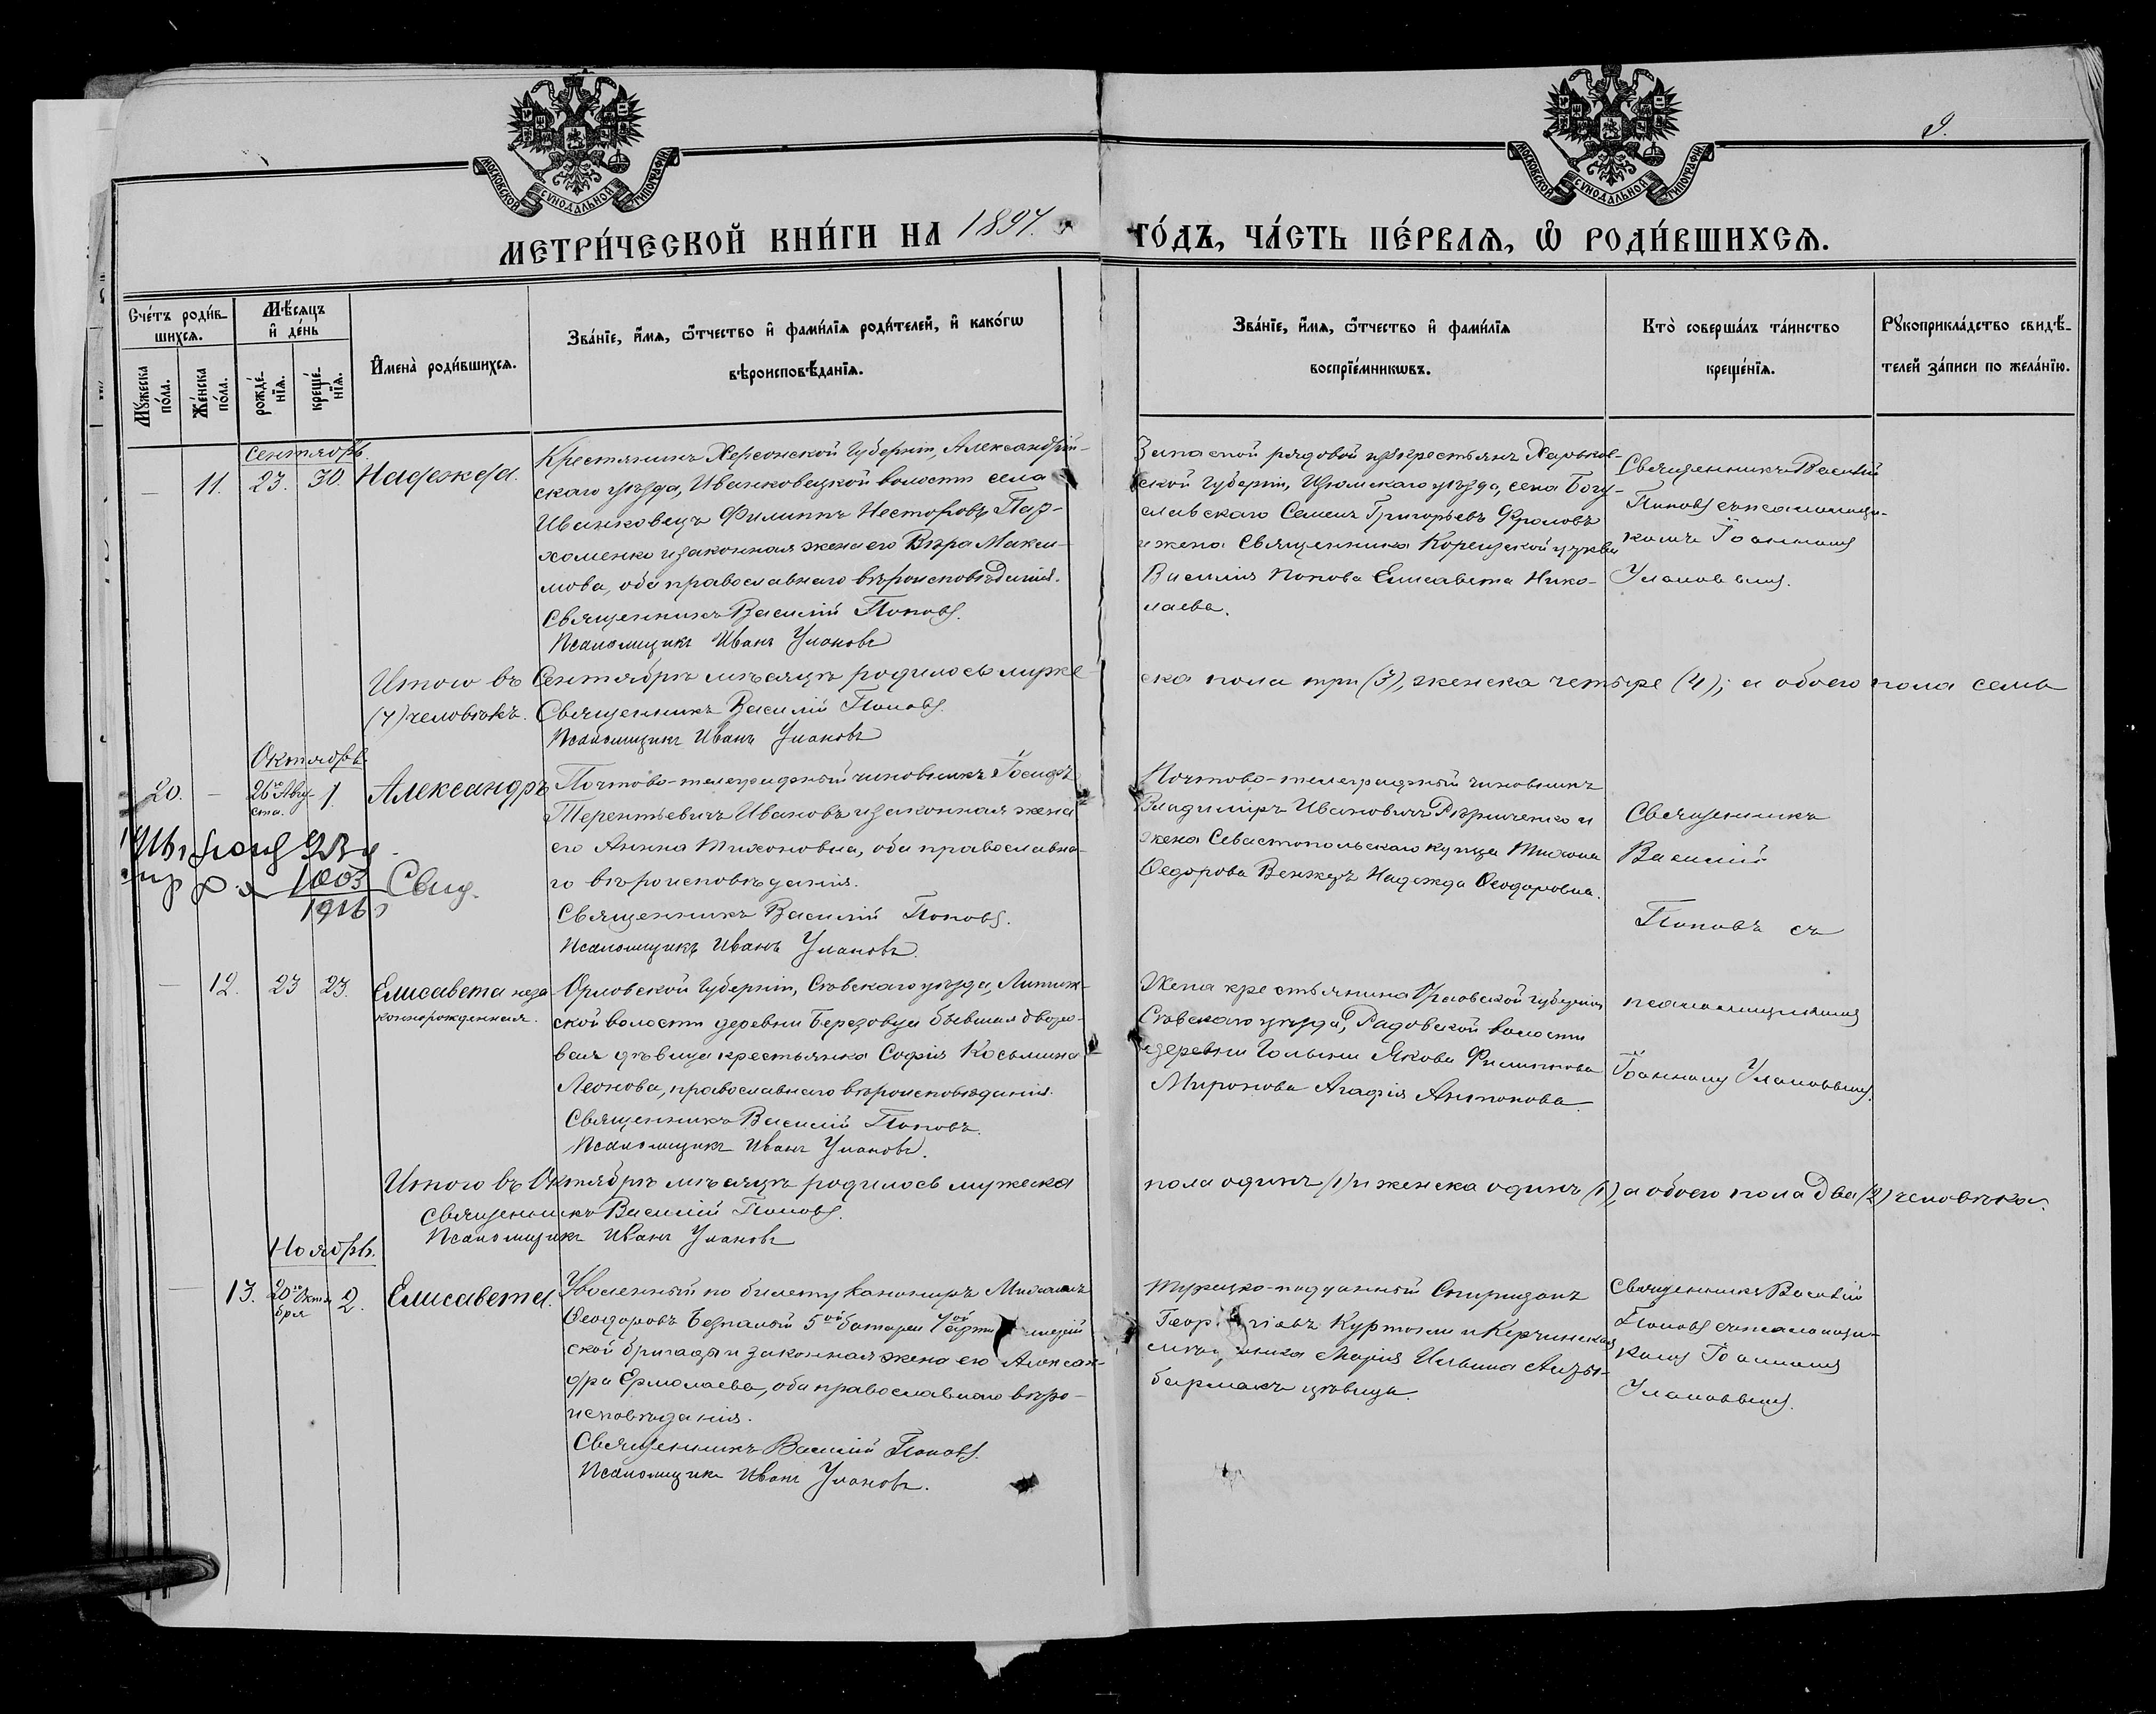 МОСКОВСКОЙ СѴНОДАЛЬНОЙ ТИПОГРАФІИ
МОСКОВСКОЙ СѴНОДАЛЬНОЙ ТИПОГРАФІИ
9.
МЕТРИ́ЧЕСКОЙ КНИ́ГИ НА 1897. ГО́ДЪ, ЧА́СТЬ ПЕ́РВАѦ, Ѡ РОДИ́ВШИХСѦ.
Сче́тъ роди́в-
шихсѧ.
Мꙋ́жеска по́ла.
Же́нска по́ла.
Мѣ́сѧцъ и҆ де́нь
рожде́-
нїѧ.
креще́-
нїѧ.
И҆мена̀ роди́вшихсѧ.
Зва́нїе, и҆́мѧ, ѻ҆́тчество и҆ фами́лїѧ роди́телей, и҆ како́гѡ
вѣроисповѣ́данїѧ.
Зва́нїе, и҆́мѧ, ѻ҆́тчество и҆ фами́лїѧ
воспрїе́мникѡвъ.
Кто̀ соверша́лъ та́инство
креще́нїѧ.
Рꙋкоприкла́дство свидѣ́-
телей за́писи по жела́нїю.
Сентябрь.
— 11. 23. 30. Надежда.
Крестьянинъ Херсонской Губерніи, Александрій-
скаго уѣзда, Иванковецкой волости села
Иванковецъ Филиппъ Несторовъ Пар-
хоменко и законная жена его Вѣра Макси-
мова, оба православнаго вѣроисповѣданія.
Священникъ Василій Поповъ.
Псаломщикъ Иванъ Улановъ
Запасной рядовой изъ крестьянъ Харьков-
ской Губерніи, Изюмскаго уѣзда, села Богу-
славскаго Семенъ Григорьевъ Фроловъ
и жена Священника Корецкой церкви
Василія Попова Елисавета Нико-
лаева.
Священникъ Василій
Поповъ съ псаломщи-
комъ Іоанномъ
Улановымъ.
Итого въ Сентябрѣ мѣсяцѣ родилось муже-
ска пола три (3), женска четыре (4); а обоего пола семь
(7) человѣкъ. Священникъ Василій Поповъ.
Псаломщикъ Иванъ Улановъ
Октябрь.
20. — 26го Авгу-
ста. 1. Александръ
Почтово-телеграфный чиновникъ Іосифъ
Терентьевичъ Ивановъ и законная жена
его Анна Тихоновна, оба православна-
го вѣроисповѣданія.
Священникъ Василій Поповъ.
Псаломщикъ Иванъ Улановъ.
Почтово-телеграфный чиновникъ
Владиміръ Ивановичъ и
жена Севастопольскаго купца Тихона
Ѳедорова Венжеръ Надежда Ѳеодоровна.
Священникъ
Василій
Поповъ съ
псаломщикомъ
Іоанномъ Улановымъ.
1916 23
1003
1916 Свид.
— 12. 23 23. Елисавета неза-
коннорожденная.
Орловской Губерніи, Сѣвскаго уѣзда, Литиж-
ской волости деревни Березовца бывшая дворо-
вая дѣвица крестьянка Софія Косьмина
Леонова, православнаго вѣроисповѣданія.
Священникъ Василій Поповъ.
Псаломщикъ Иванъ Улановъ.
Жена крестьянина Орловской губерніи
Сѣвскаго уѣзда, Радовской волости
деревни Голыни Якова Филиппова
Миронова Агафія Антонова.
Итого въ Октябрѣ мѣсяцѣ родилось мужеска
пола одинъ (1) и женска одинъ (1), а обоего пола два (2) человѣка.
Священникъ Василій Поповъ.
Псаломщикъ Иванъ Улановъ
Ноябрь.
— 13. 20го Октя-
бря 2. Елисавета.
Уволенный по билету канониръ Михаилъ
Ѳеодоровъ Безпалый 5ой батареи 7ой
ской бригады и законная жена его Алексан-
дра Ермолаева, оба православнаго вѣро-
исповѣданія.
Священникъ Василій Поповъ.
Псаломщикъ Иванъ Улановъ.
Турецко-подданный Спиридонъ
Георгіевъ Куртоки и Керченская
Марія Ильина
бармакъ дѣвица.
Священникъ Василій
Поповъ съ псаломщи-
комъ Іоанномъ
Улановымъ.